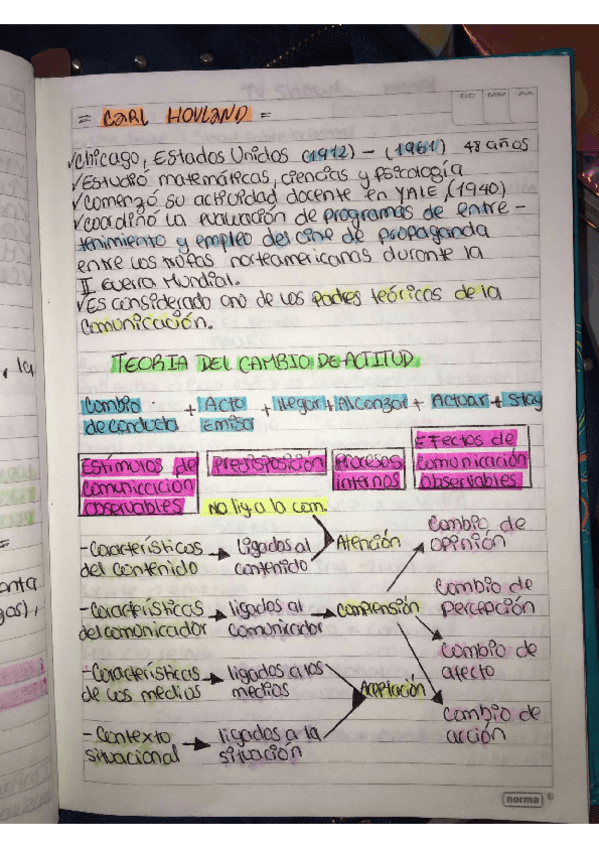 = CARL HOVLAND =
✓Chicago, Estados Unidos (1912) - (1961) 48 años
✓Estudió matemáticas, ciencias y psicología
✓Comenzó su actividad docente en YALE, (1940)
✓coordinó la evaluación de programas de entre-
tenimiento y empleo del cine de propaganda
entre los tropas norteamericanas durante la
II Guerra Mundial.
✓Es considerado uno de los padres teóricos de la
comunicación.
TEORIA DEL CAMBIO DE ACTITUD
Cambio de conducta + Acto Emisor + llegar + Alcanzar + Actuar + Stay
Estímulos de comunicación observables
Predisposición
Procesos internos
Efectos de comunicación observables
No lig a la com.
-Características del contenido → ligados al contenido
Atención
Cambio de opinión
-Características del comunicador → ligados al comunicador → comprensión
Cambio de percepción
Cambio de afecto
-Características de los medios → ligados a los medios
Aceptación
Cambio de acción
-Contexto situacional → ligados a la situación
norma